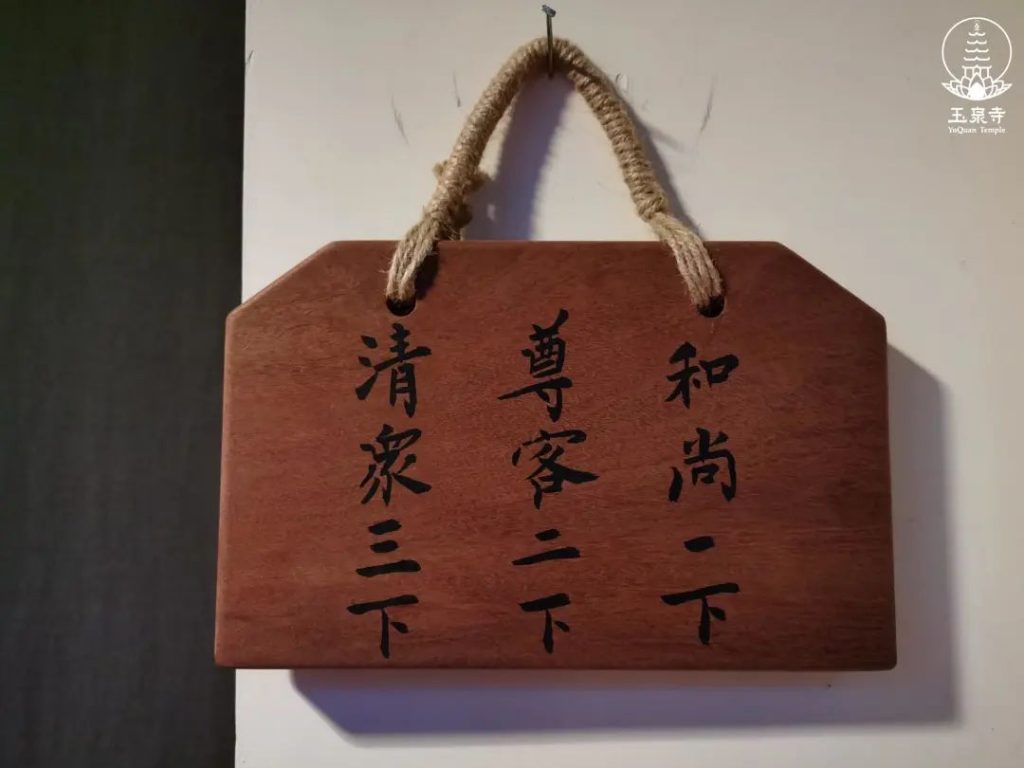 和尚一下
尊客二下
清衆三下
玉泉寺
YuQuan Temple